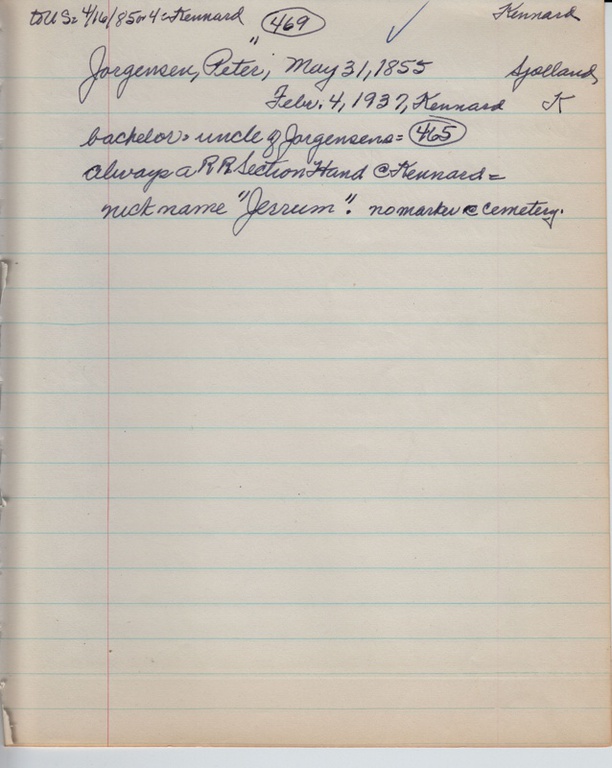 to US = 4/16/85 or 4 = Kennard 469 ✓ Kennard
"
Jorgensen, Peter; May 31, 1855 Sjolland,
Febr. 4, 1937, Kennard K
bachelor = uncle of Jorgensens = 465
always a RR Section Hand @ Kennard =
nick name "Jerrum". no marker @ cemetery.